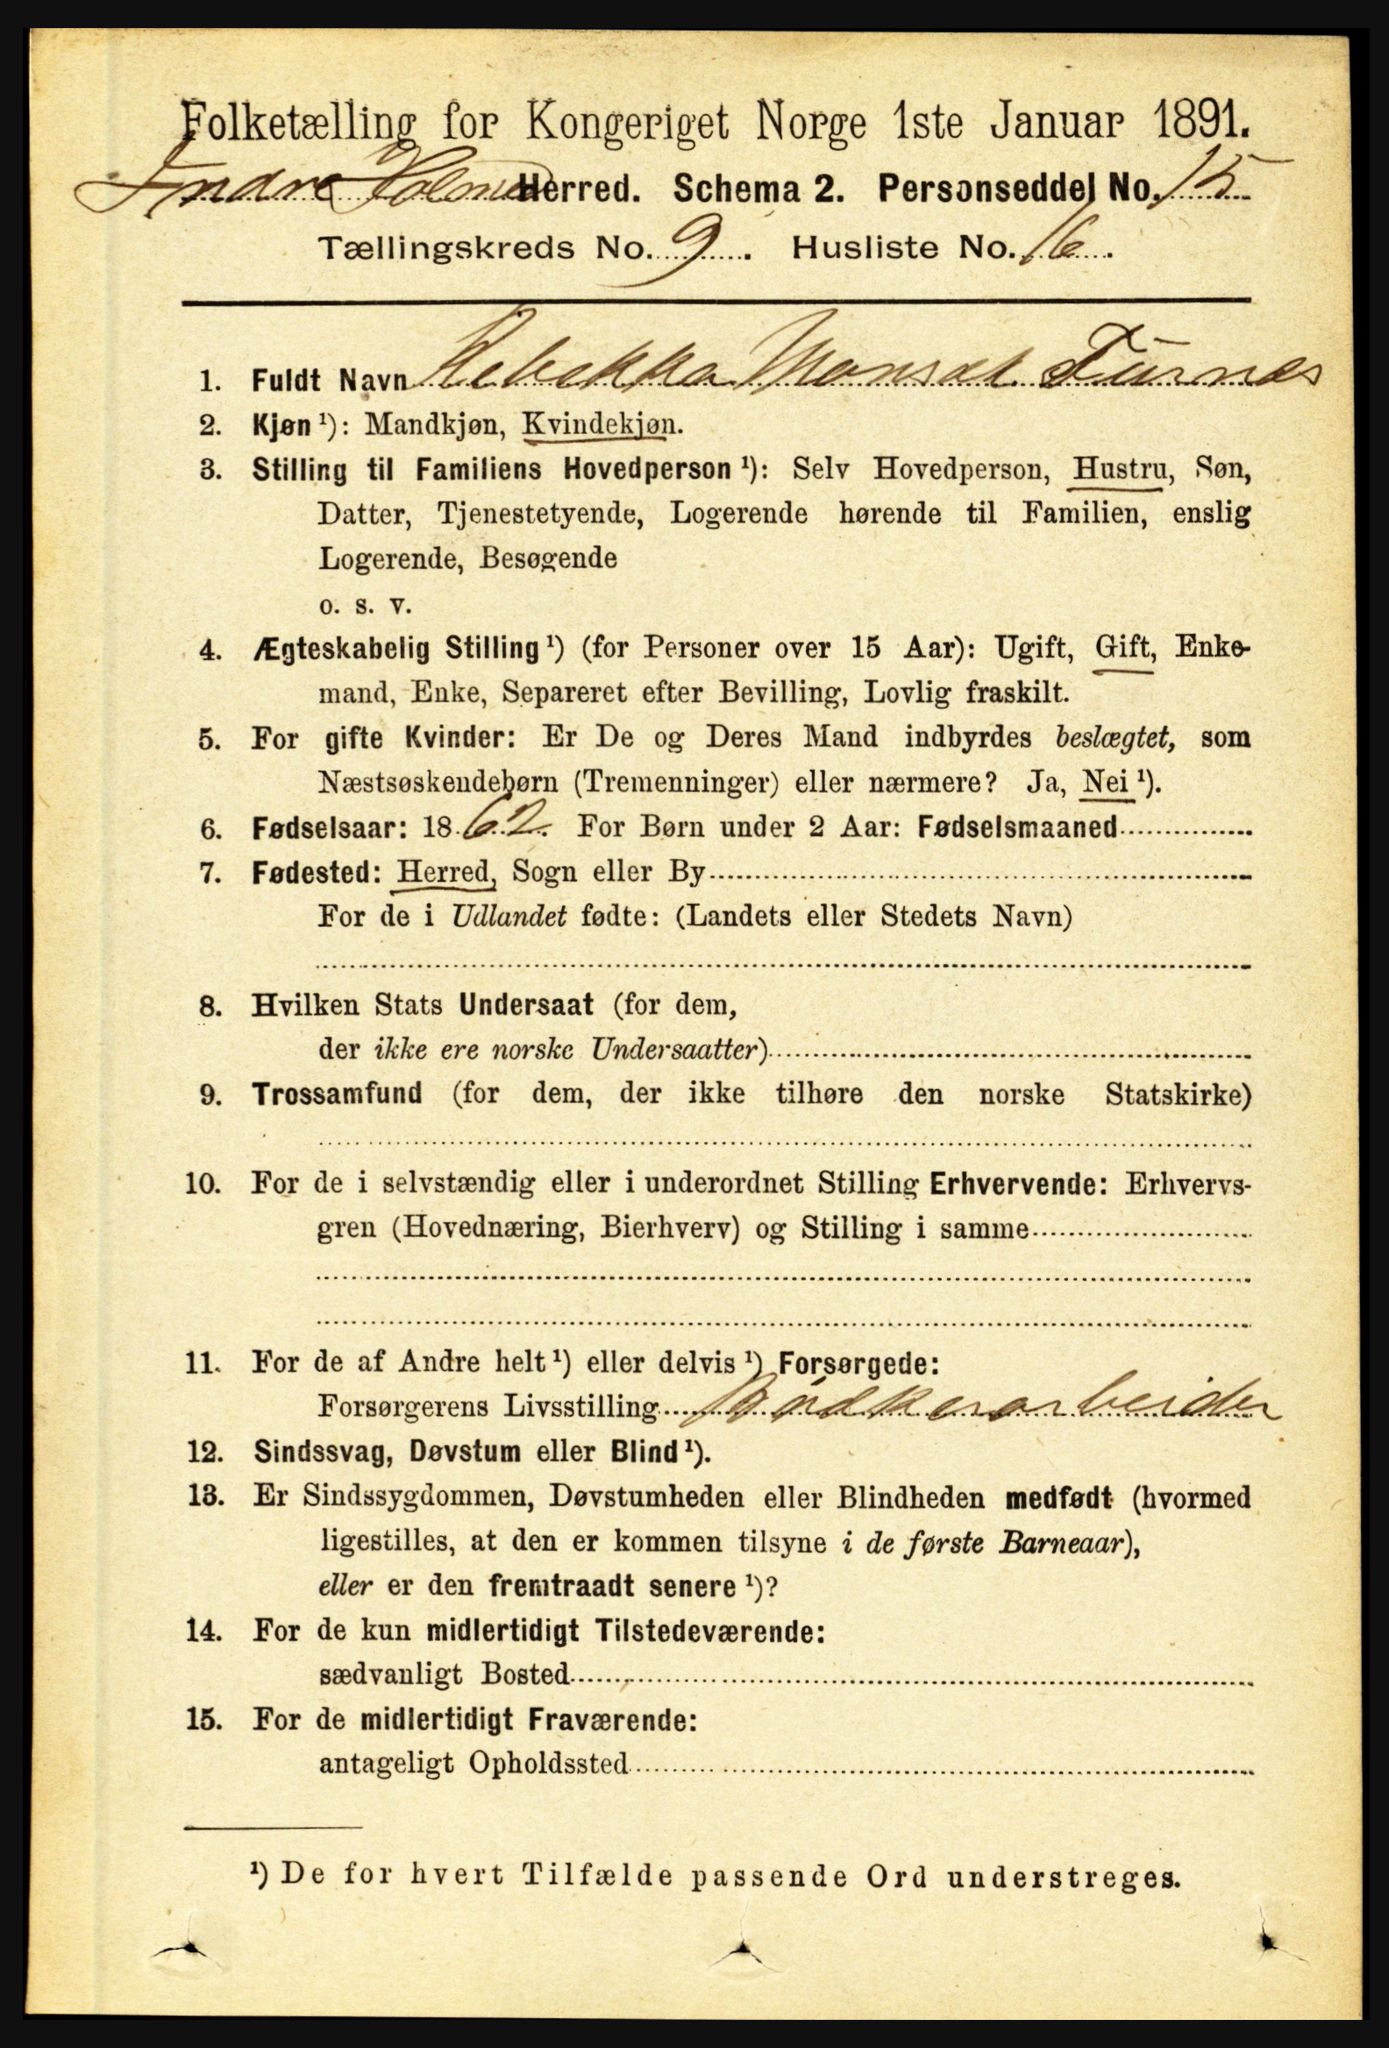 Folketælling for Kongeriget Norge 1ste Januar 1891.
Indre Holmed Herred. Schema 2. Personseddel No. 15
Tællingskreds No. 9. Husliste No. 16.
1. Fuldt Navn Rebekka Monsdt Turnes
2. Kjøn ¹): Mandkjøn, Kvindekjøn.
3. Stilling til Familiens Hovedperson ¹): Selv Hovedperson, Hustru, Søn,
Datter, Tjenestetyende, Logerende hørende til Familien, enslig
Logerende, Besøgende
o. s. v.
4. Ægteskabelig Stilling ¹) (for Personer over 15 Aar): Ugift, Gift, Enke-
mand, Enke, Separeret efter Bevilling, Lovlig fraskilt.
5. For gifte Kvinder: Er De og Deres Mand indbyrdes beslægtet, som
Næstsøskendebørn (Tremenninger) eller nærmere? Ja, Nei ¹).
6. Fødselsaar: 1862. For Børn under 2 Aar: Fødselsmaaned
7. Fødested: Herred, Sogn eller By
For de i Udlandet fødte: (Landets eller Stedets Navn)
8. Hvilken Stats Undersaat (for dem,
der ikke ere norske Undersaatter)
9. Trossamfund (for dem, der ikke tilhøre den norske Statskirke)
10. For de i selvstændig eller i underordnet Stilling Erhvervende: Erhvervs-
gren (Hovednæring, Bierhverv) og Stilling i samme
11. For de af Andre helt ¹) eller delvis ¹) Forsørgede:
Forsørgerens Livsstilling Bödkerarbeider
12. Sindssvag, Døvstum eller Blind ¹).
13. Er Sindssygdommen, Døvstumheden eller Blindheden medfødt (hvormed
ligestilles, at den er kommen tilsyne i de første Barneaar),
eller er den fremtraadt senere ¹)?
14. For de kun midlertidigt Tilstedeværende:
sædvanligt Bosted
15. For de midlertidigt Fraværende:
antageligt Opholdssted
¹) De for hvert Tilfælde passende Ord understreges.